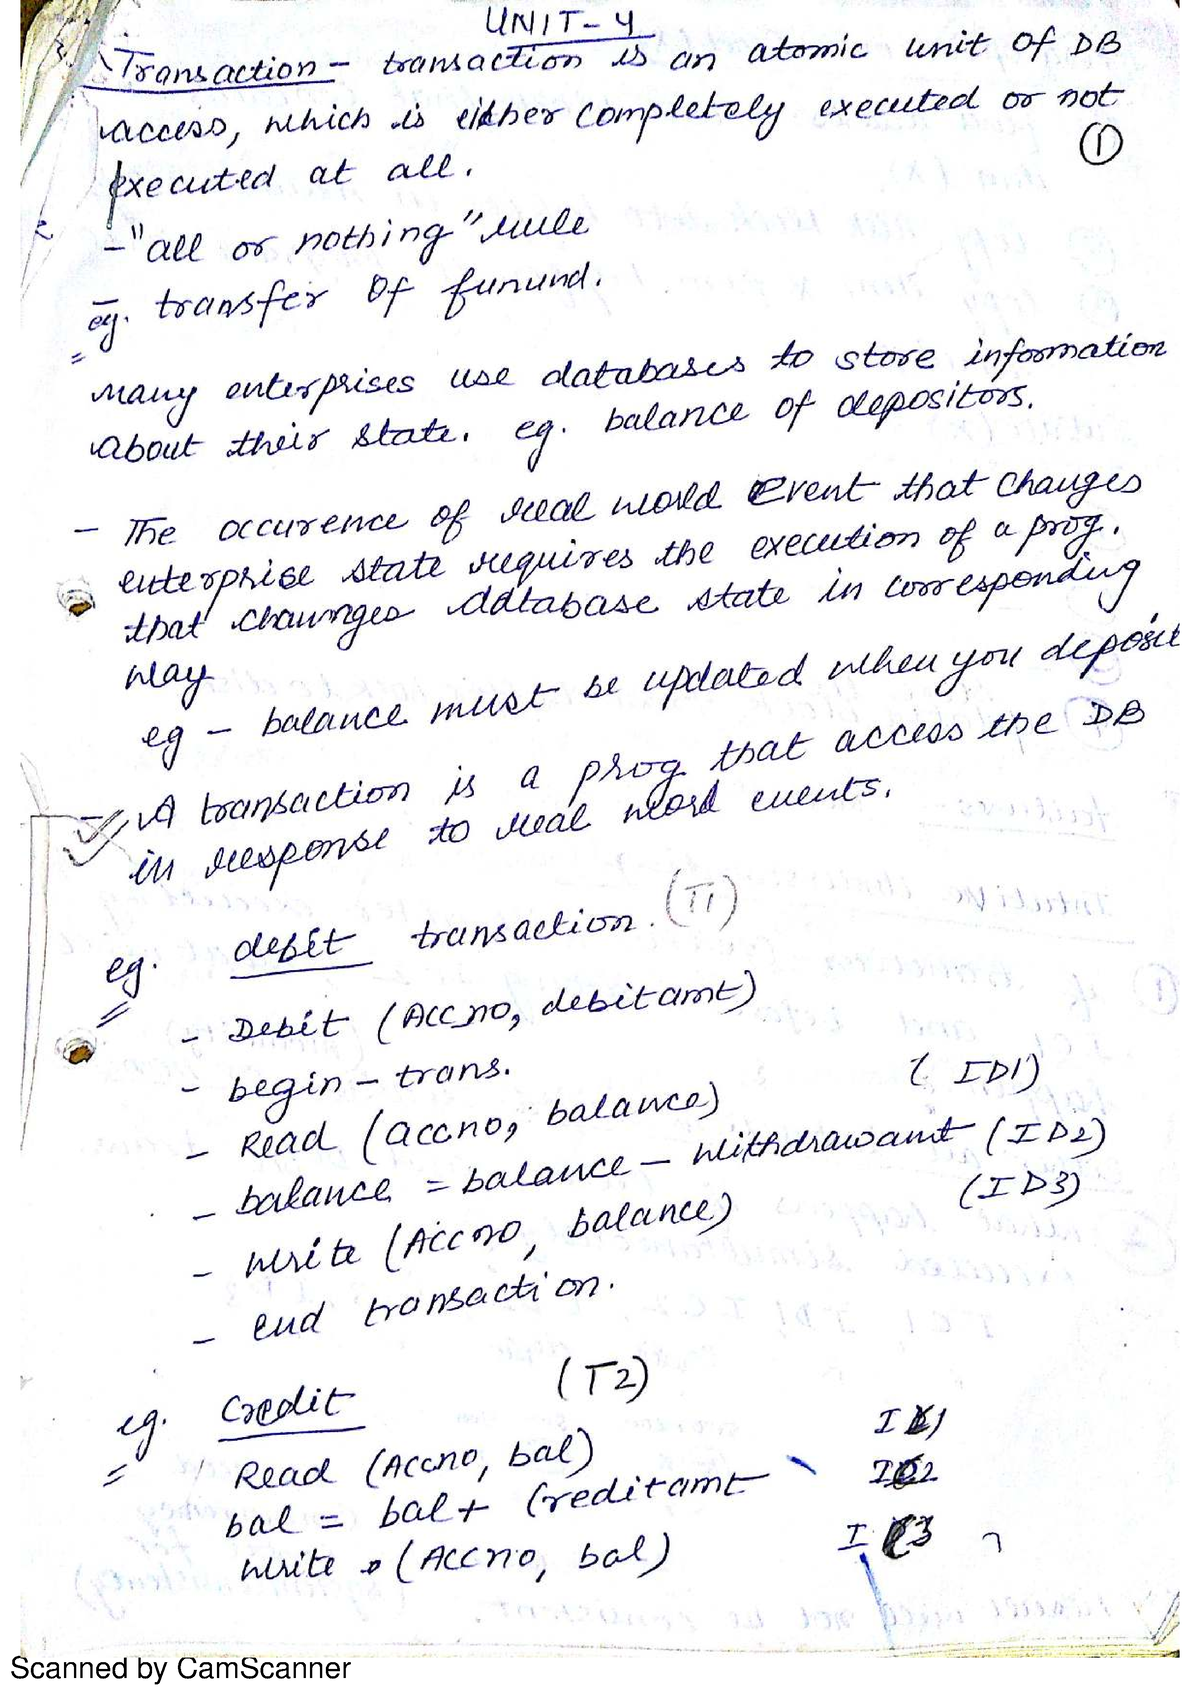 UNIT-4
Transaction - transaction is an atomic unit of DB
access, which is either completely executed or not
executed at all.
①
- "all or nothing" rule
- eg. transfer of funund.
Many enterprises use databases to store information
about their state. eg. balance of depositors.
- The occurence of real world event that changes
enterprise state requires the execution of a prog.
that chaunges database state in corresponding
way
eg - balance must be updated when you deposit
- A transaction is a prog that access the DB
in response to real word events.
eg. debit transaction. (T1)
- Debit (Acc no, debitamt)
- begin - trans.
- Read (accno, balance) (ID1)
- balance = balance - withdrawamt (ID2)
- write (Accno, balance) (ID3)
- end transaction.
eg. Credit (T2)
Read (Accno, bal) IC1
bal = bal + Creditamt IC2
write (Accno, bal) IC3
Scanned by CamScanner